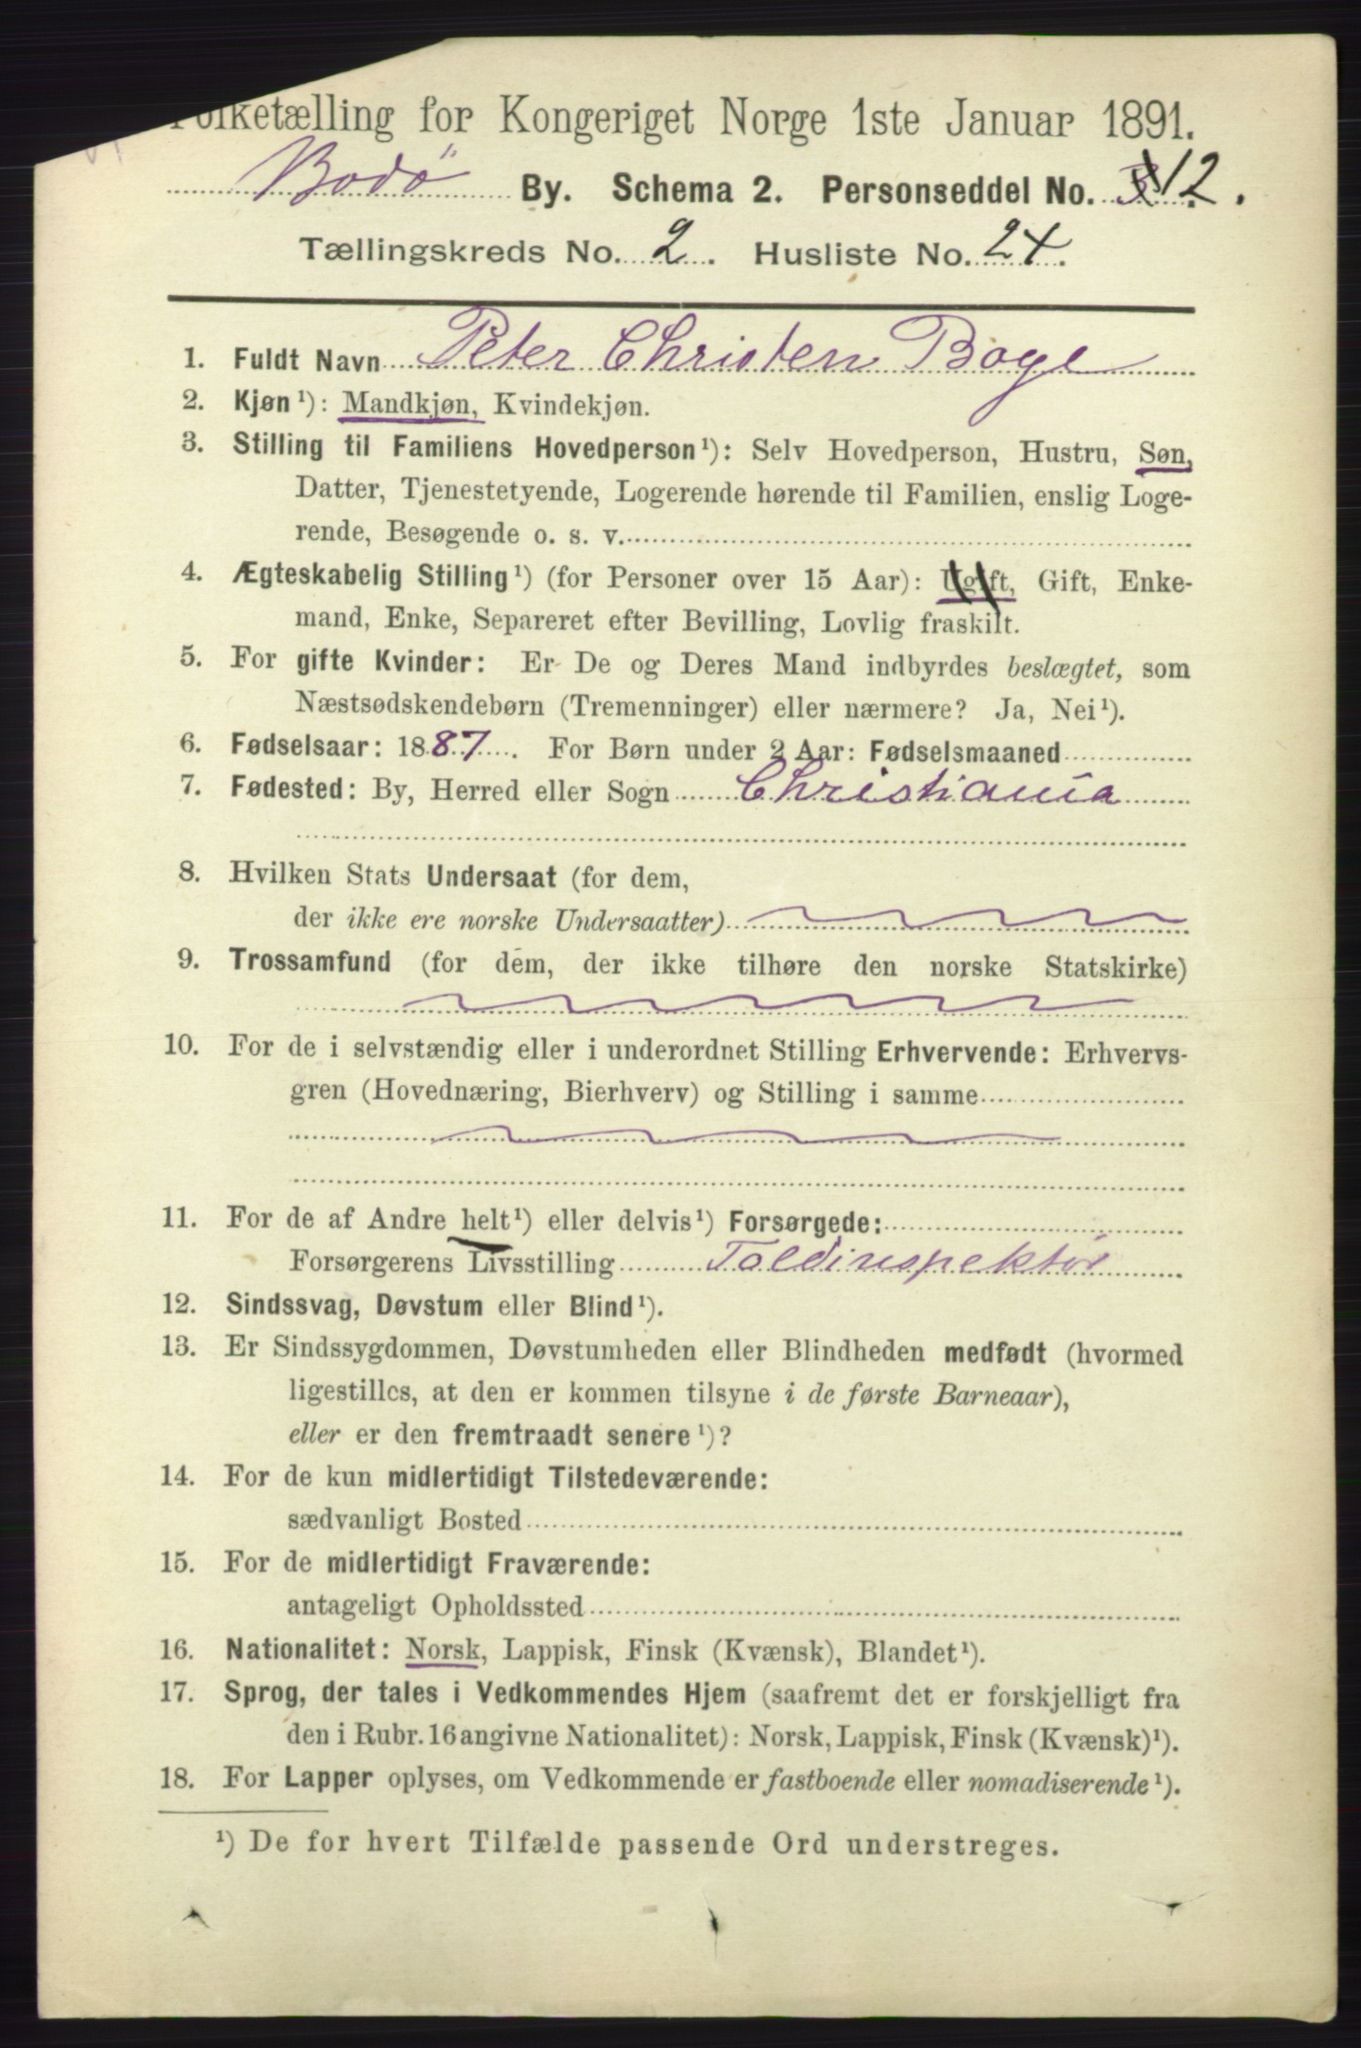 Folketælling for Kongeriget Norge 1ste Januar 1891.
Bodø By. Schema 2. Personseddel No. 12.
Tællingskreds No. 2. Husliste No. 24.
1. Fuldt Navn Peter Christen Boye
2. Kjøn¹): Mandkjøn, Kvindekjøn.
3. Stilling til Familiens Hovedperson¹): Selv Hovedperson, Hustru, Søn,
Datter, Tjenestetyende, Logerende hørende til Familien, enslig Loge-
rende, Besøgende o. s. v.
4. Ægteskabelig Stilling¹) (for Personer over 15 Aar): Ugift, Gift, Enke-
mand, Enke, Separeret efter Bevilling, Lovlig fraskilt.
5. For gifte Kvinder: Er De og Deres Mand indbyrdes beslægtet, som
Næstsødskendebørn (Tremenninger) eller nærmere? Ja, Nei¹).
6. Fødselsaar: 1887. For Børn under 2 Aar: Fødselsmaaned
7. Fødested: By, Herred eller Sogn Christiania
8. Hvilken Stats Undersaat (for dem,
der ikke ere norske Undersaatter)
9. Trossamfund (for dem, der ikke tilhøre den norske Statskirke)
10. For de i selvstændig eller i underordnet Stilling Erhvervende: Erhvervs-
gren (Hovednæring, Bierhverv) og Stilling i samme
11. For de af Andre helt¹) eller delvis¹) Forsørgede:
Forsørgerens Livsstilling Toldinspektør
12. Sindssvag, Døvstum eller Blind¹).
13. Er Sindssygdommen, Døvstumheden eller Blindheden medfødt (hvormed
ligestilles, at den er kommen tilsyne i de første Barneaar),
eller er den fremtraadt senere¹)?
14. For de kun midlertidigt Tilstedeværende:
sædvanligt Bosted
15. For de midlertidigt Fraværende:
antageligt Opholdssted
16. Nationalitet: Norsk, Lappisk, Finsk (Kvænsk), Blandet¹).
17. Sprog, der tales i Vedkommendes Hjem (saafremt det er forskjelligt fra
den i Rubr. 16 angivne Nationalitet): Norsk, Lappisk, Finsk (Kvænsk)¹).
18. For Lapper oplyses, om Vedkommende er fastboende eller nomadiserende¹).
¹) De for hvert Tilfælde passende Ord understreges.